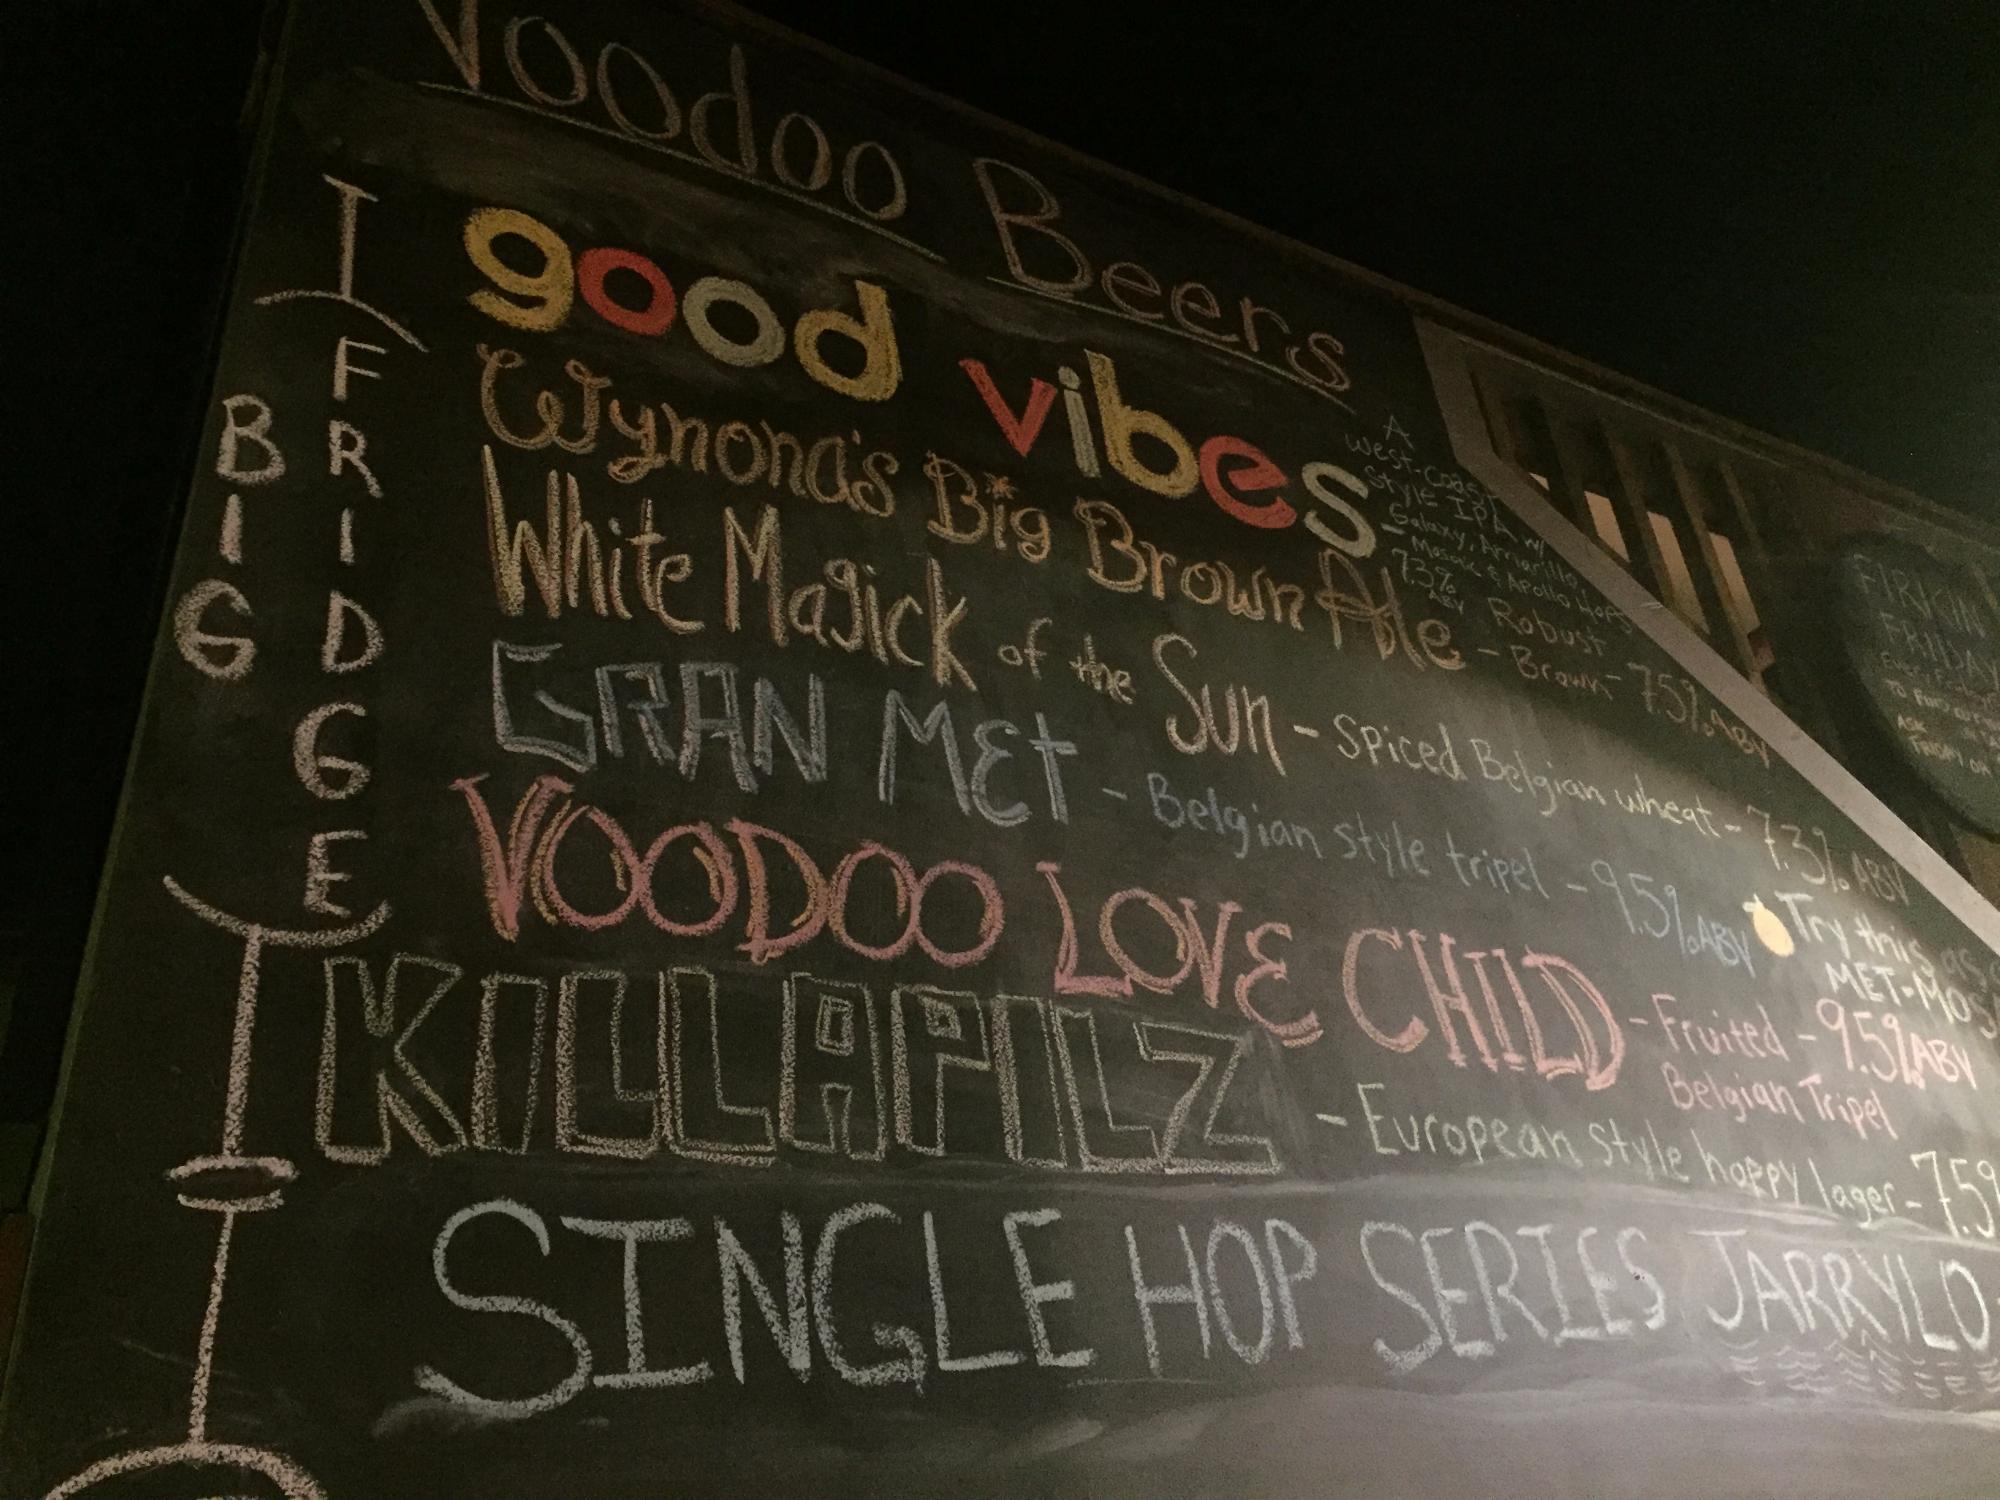 Voodoo Beers
BIG
FRIDGE
good vibes -
A
West-coast
Style IPA w/
Galaxy, Amarillo
Mosaic & Apollo Hops
7.3%
ABV
Wynona's Big Brown Ale - Robust
Brown - 7.5% ABV
White Magick of the Sun - Spiced Belgian wheat - 7.3% ABV
GRAN MET - Belgian style tripel - 9.5% ABV
Try this as a
MET-MOSA
VOODOO LOVE CHILD - Fruited - 9.5% ABV
Belgian Tripel
KILLAPILZ - European style hoppy lager - 7.5%
SINGLE HOP SERIES JARRYLO -
FIRKIN
FRIDAY
ASK